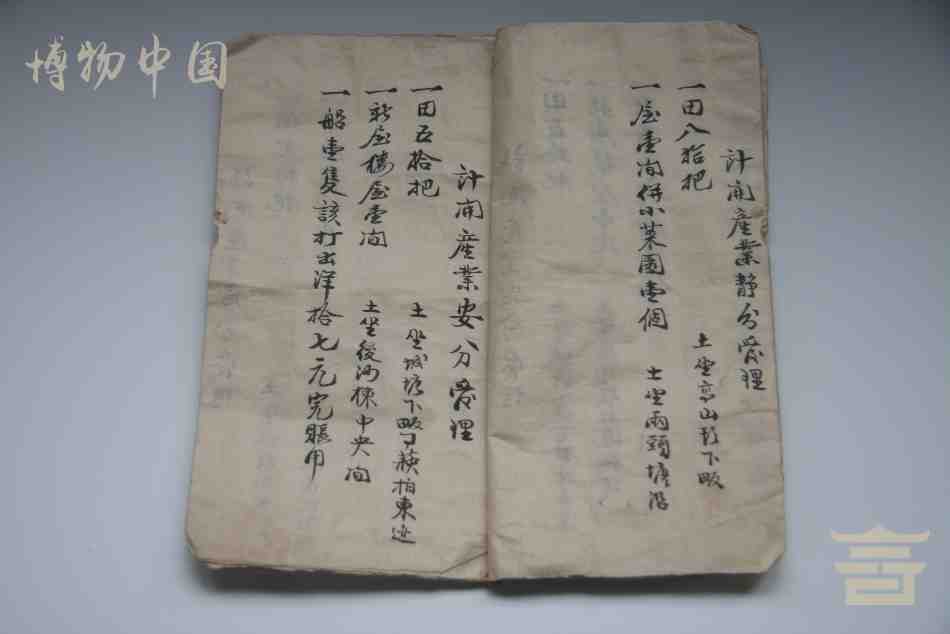 博物中国
計開産業静分受理
一田八拾把 土坐高山彭下畈
一屋壹间併小菜園壹個 土坐两頭塘沿
計開産業安分受理
一田五拾把 土坐城塘下畈
一新屋樓屋壹间 土坐後河棟中央间
一船壹隻該打出洋拾七元完賬用